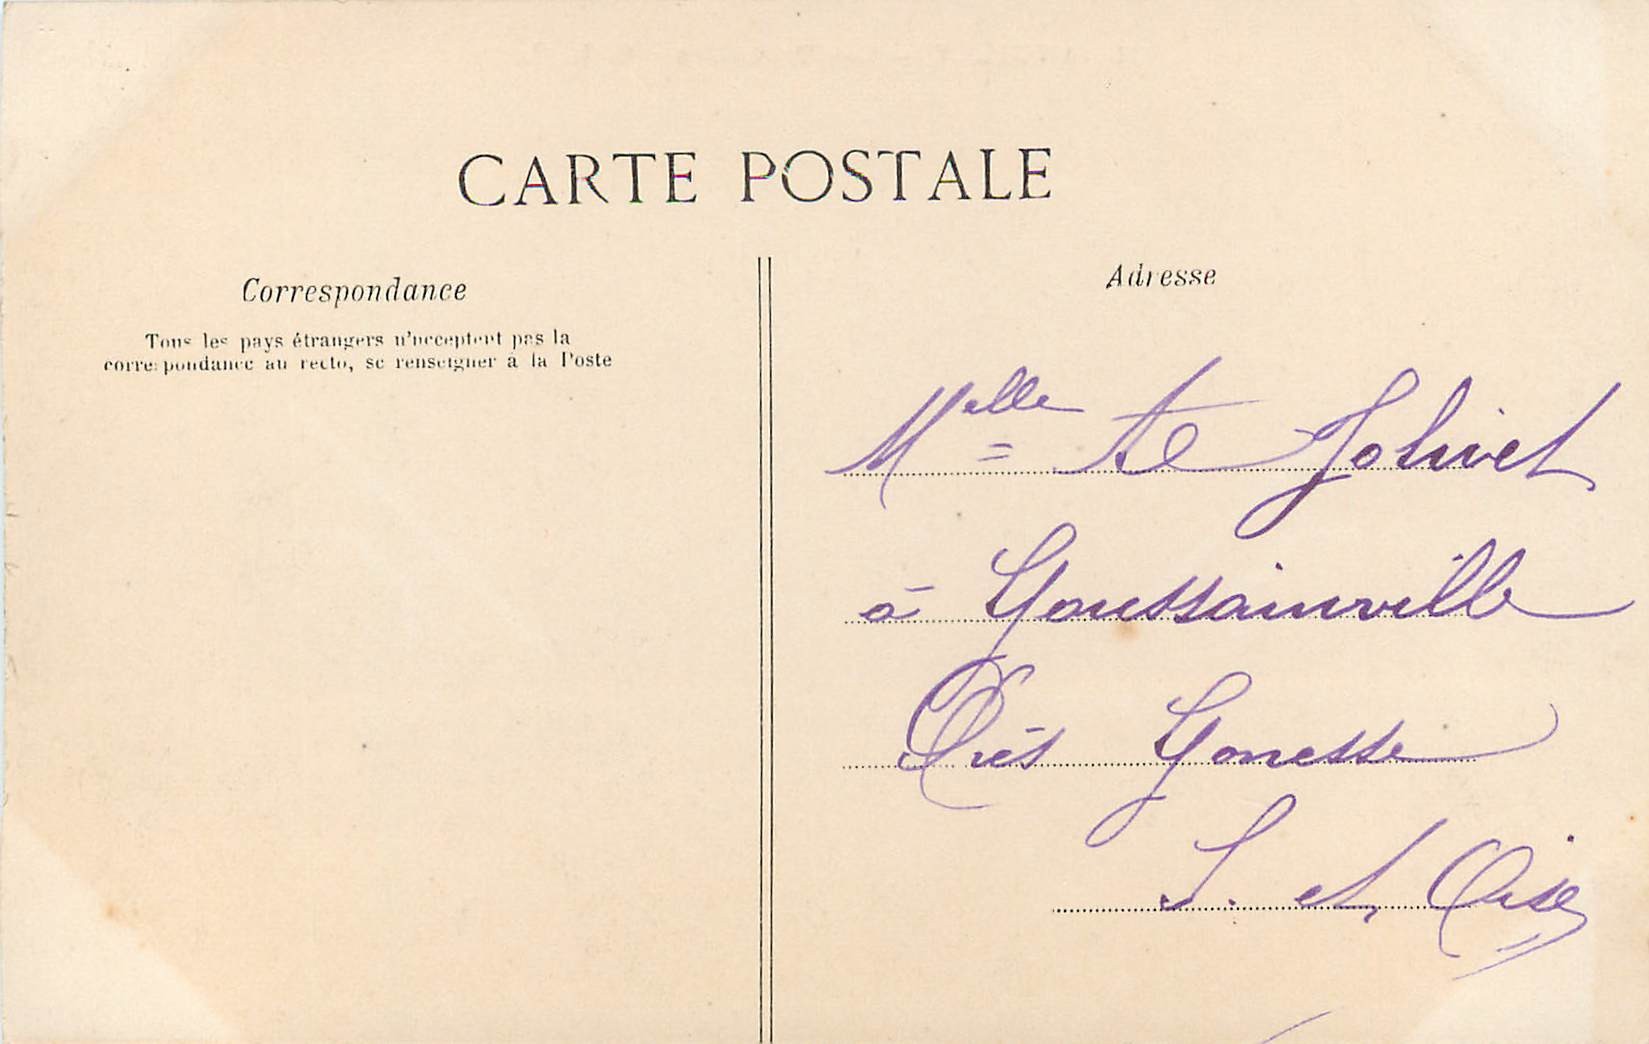 CARTE POSTALE
Correspondance
Tous les pays étrangers n'acceptent pas la
correspondance au recto, se renseigner à la Poste
Adresse
Melle = A Jolivet
à Goussainville
Près Gonesse
S. et Oise